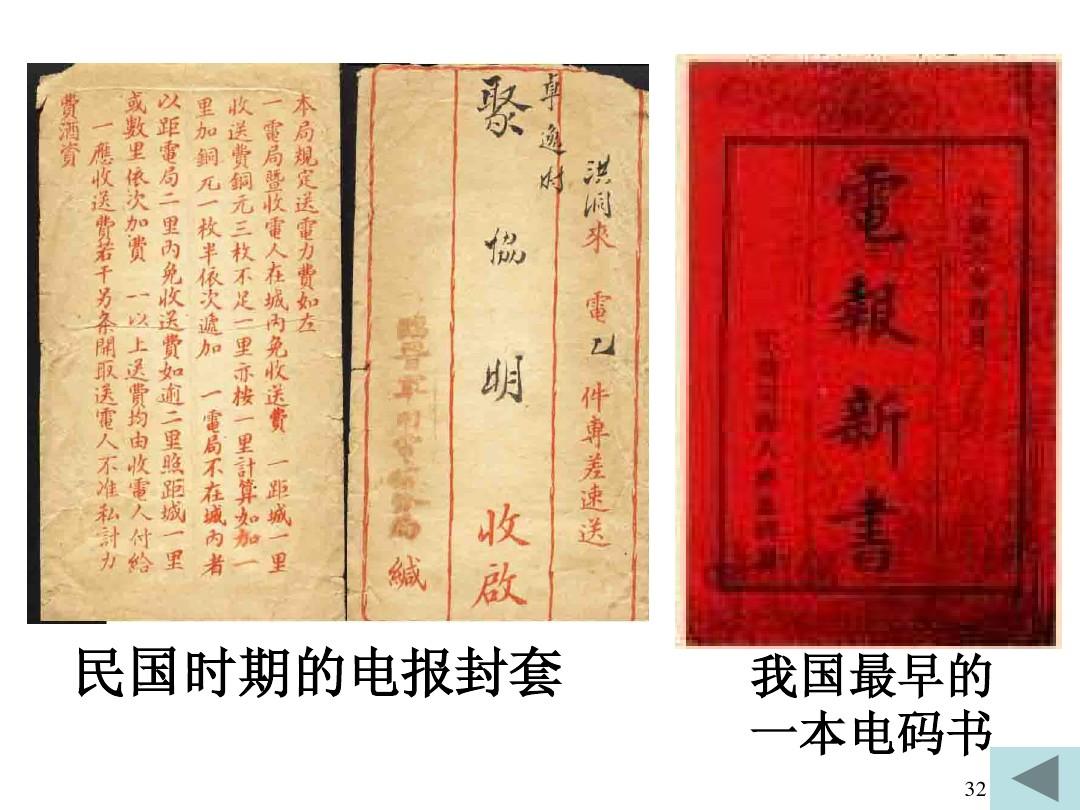 本局規定送電力費如左
一電局暨收電人在城內免收送費 一距城一里
收送費銅元三枚不足一里亦按一里計算如加一
里加銅元一枚半依次遞加 一電局不在城內者
以距電局二里內免收送費如逾二里照距城一里
或數里依次加費 一以上送費均由收電人付給
一應收送費若干另条開取送電人不准私討力
費酒資
洪洞來電乙件專差速送
聚協明收啟
緘
電報新書
民国时期的电报封套
我国最早的
一本电码书
32